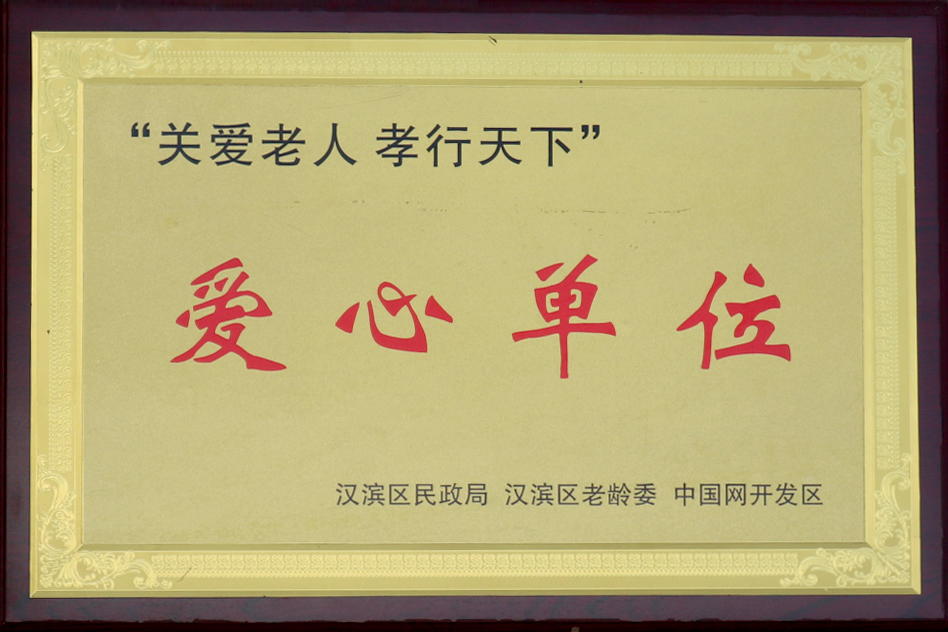 “关爱老人 孝行天下”
爱心单位
汉滨区民政局 汉滨区老龄委 中国网开发区